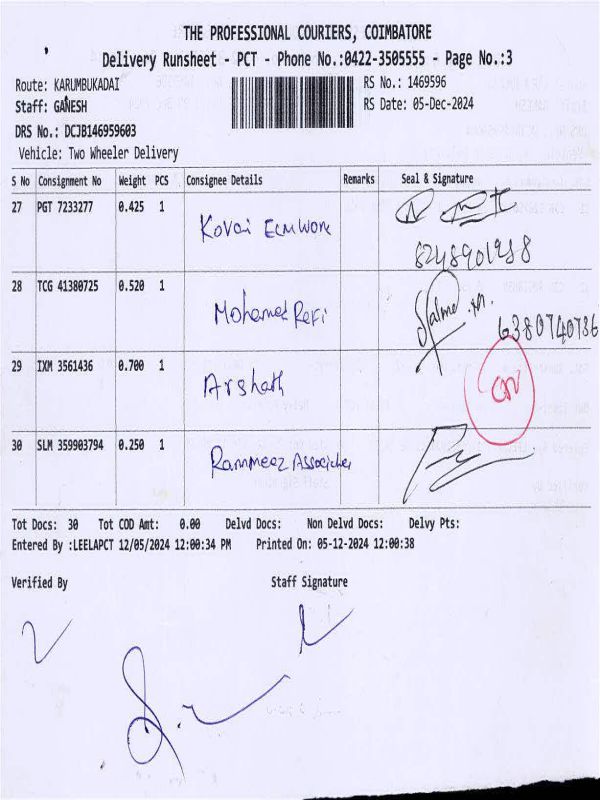 THE PROFESSIONAL COURIERS, COIMBATORE
Delivery Runsheet - PCT - Phone No.:0422-3505555 - Page No.:3
Route: KARUMBUKADAI
RS No.: 1469596
Staff: GANESH
RS Date: 05-Dec-2024
DRS No.: DCJB146959603
Vehicle: Two Wheeler Delivery
S No Consignment No Weight PCS Consignee Details Remarks Seal & Signature
27 PGT 7233277 0.425 1 Kovai
8248901988
28 TCG 41380725 0.520 1 Mohamed Refi
6380740736
29 IXM 3561436 0.700 1 Arshath
30 SLM 359903794 0.250 1 Rammeez Associates
Tot Docs: 30 Tot COD Amt: 0.00 Delvd Docs: Non Delvd Docs: Delvy Pts:
Entered By :LEELAPCT 12/05/2024 12:00:34 PM Printed On: 05-12-2024 12:00:38
Verified By Staff Signature